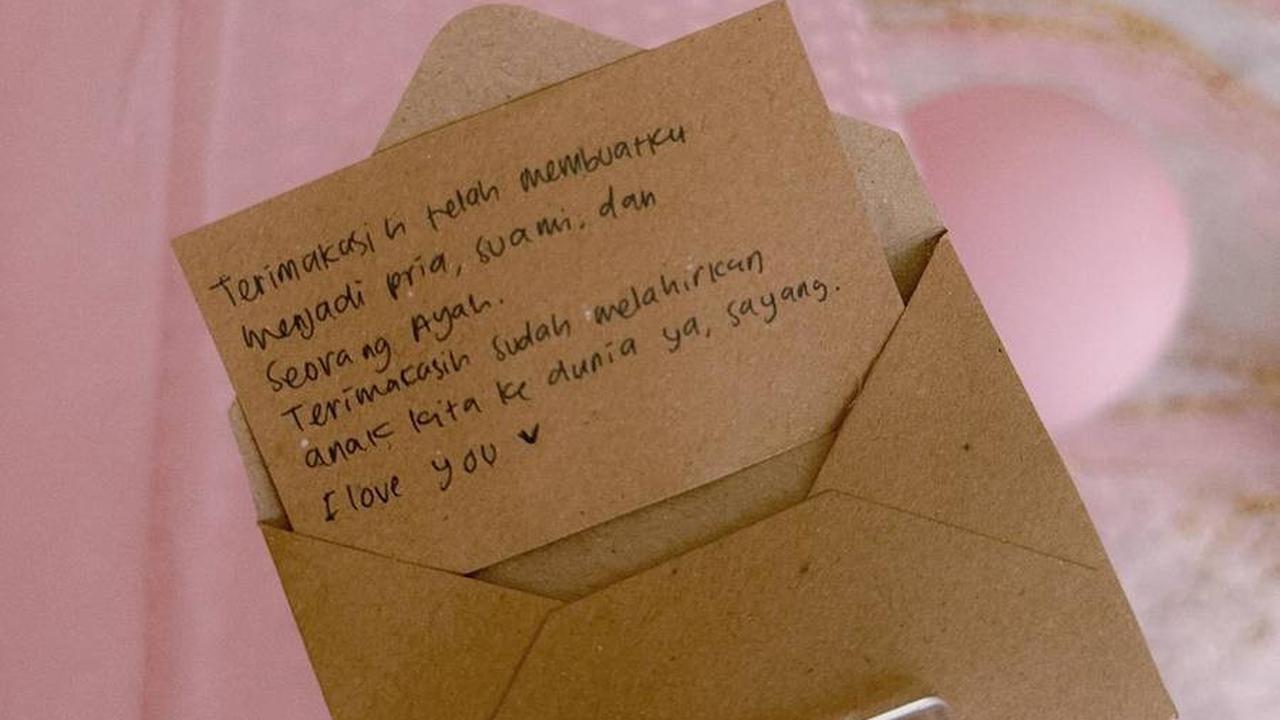 Terimakasih telah membuatku
menjadi pria, suami, dan
Seorang Ayah.
Terimakasih sudah melahirkan
anak kita ke dunia ya, sayang.
I love you